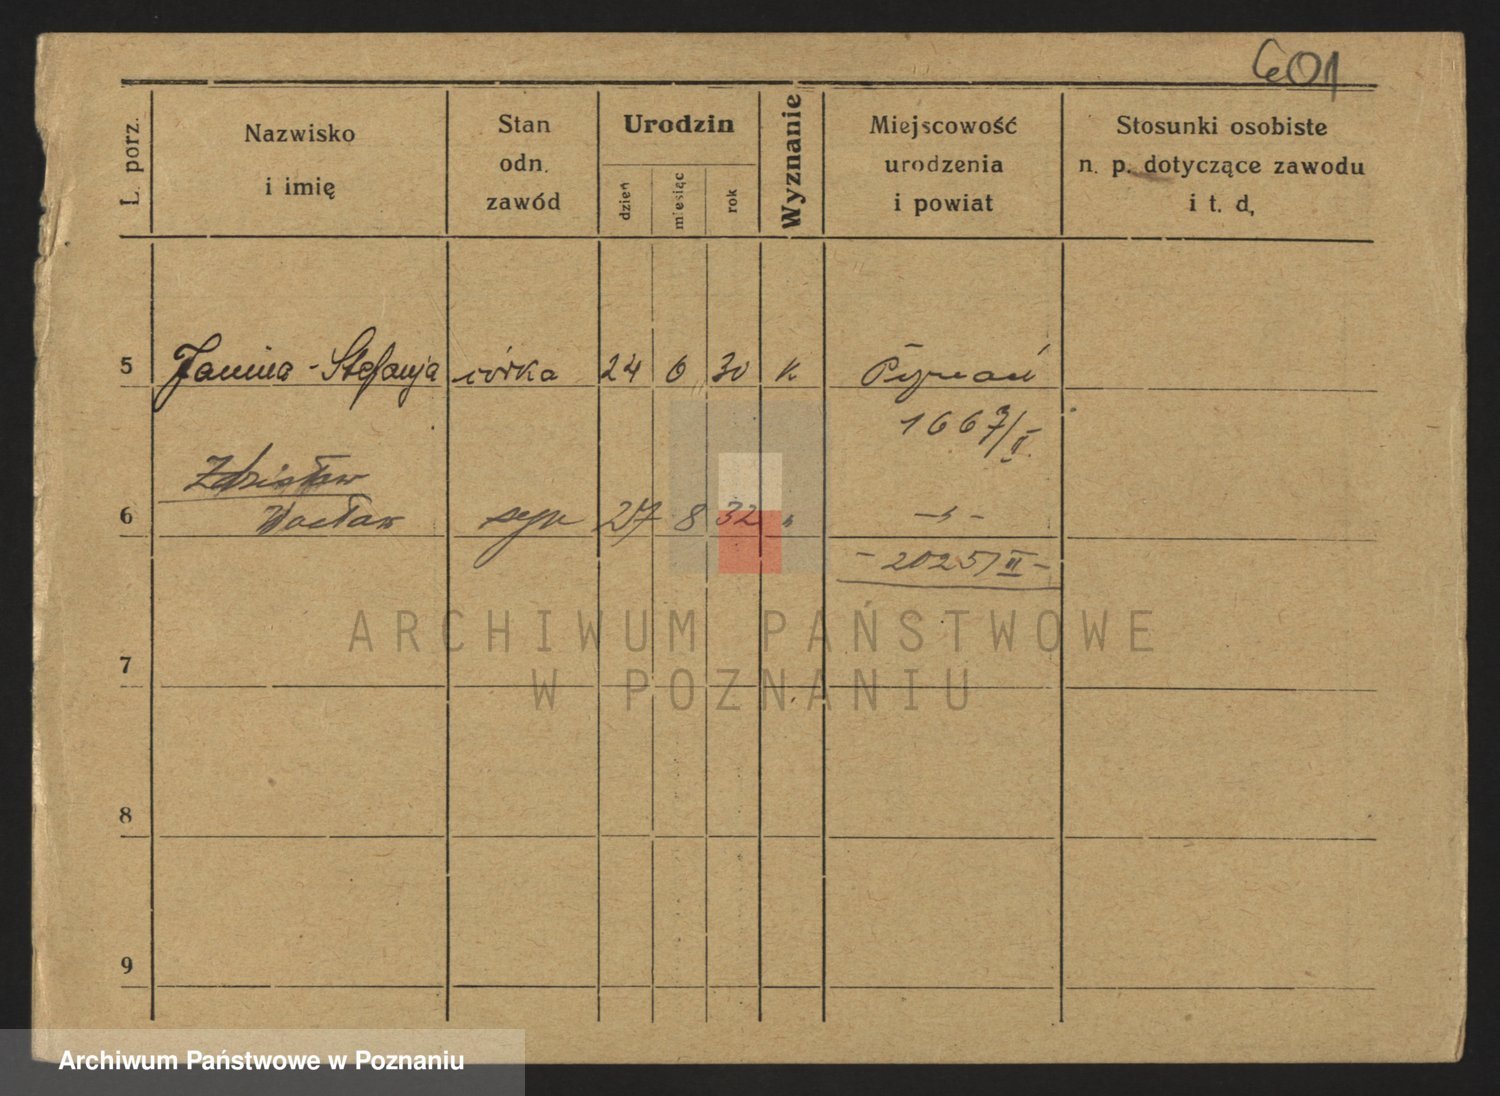 601
L. porz.
Nazwisko
i imię
Stan
odn.
zawód
Urodzin
dzień
miesiąc
rok
Wyznanie
Miejscowość
urodzenia
i powiat
Stosunki osobiste
n. p. dotyczące zawodu
i t. d,
5 Janina - Stefanja córka 24 6 30 K Poznań
1667/II.
Zdzisław
6 Wacław syn 27 8 32 " - " -
- 2025/II -
7
8
9
ARCHIWUM PAŃSTWOWE
W POZNANIU
Archiwum Państwowe w Poznaniu